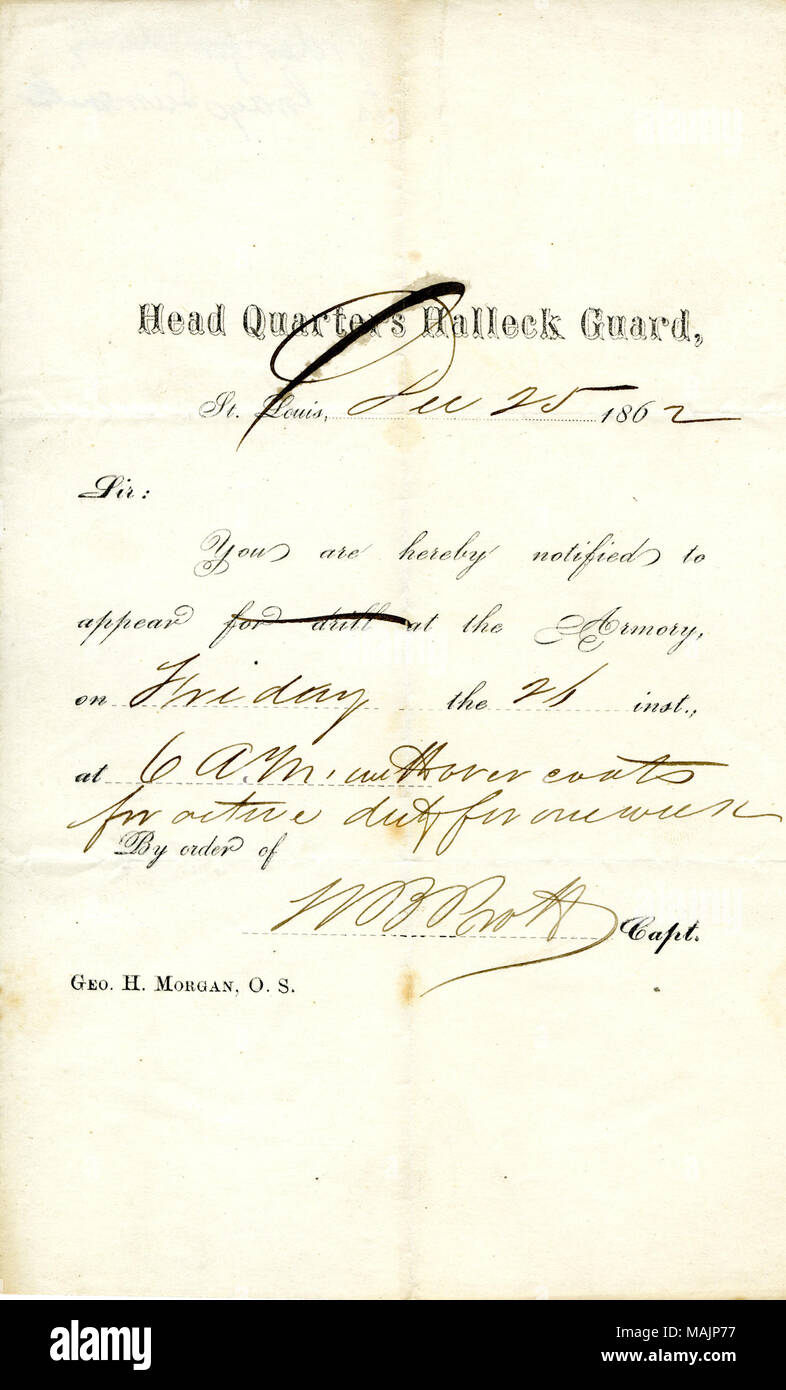 Head Quarters Halleck Guard,
St. Louis, Dec 25 1862
Sir:
You are hereby notified to
appear for drill at the Armory,
on Friday the 26 inst.,
at 6 A.M. with over coats
for active duty for one week
By order of
W B Pratt Capt.
GEO. H. MORGAN, O. S.
alamy
alamy
a
a
alamy
Image ID: MAJP77
www.alamy.com